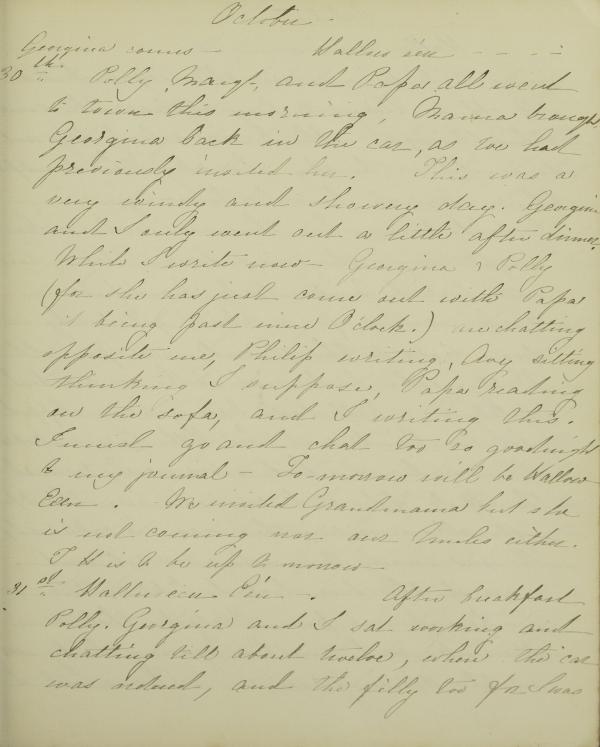 October
Georgina comes — Hallow een - - - -
30th Polly, Margt, and Papa all went
to town this morning, Mama brought
Georgina back in the car, as we had
previously invited her. This was a
very windy and showery day. Georgina
and I only went out a little after dinner.
While I write now Georgina & Polly
(for she has just come out with Papa
it being past nine O'clock.) are chatting
opposite me, Philip writing, Avy sitting
thinking I suppose, Papa reading
on the sofa, and I writing this.
I must go and chat too so goodnight
to my journal — To-morrow will be Hallow
Een. We invited Grandmama but she
is not coming nor our Uncles either.
is to be up to morrow
31st Hallow een E'en. After breakfast
Polly. Georgina and I sat working and
chatting till about twelve, when the car
was ordered, and the filly too for I was